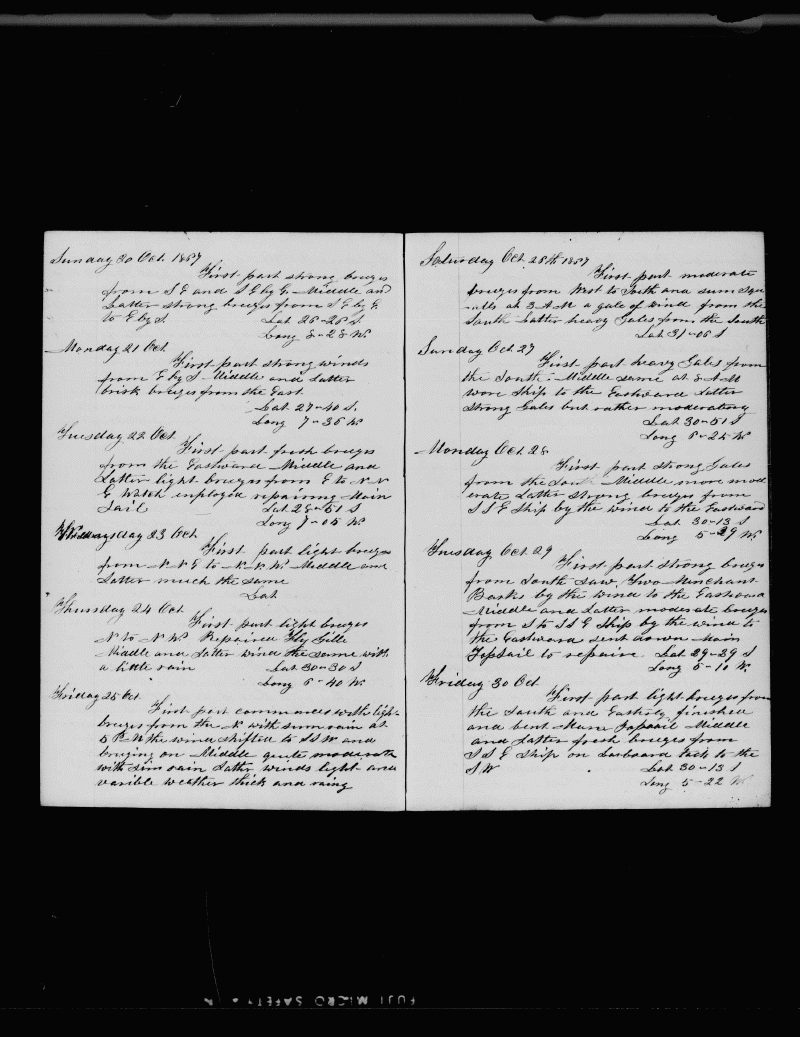 Sunday 20 Oct 1867
First part strong breezes
from S E and S E by E. Middle and
Latter strong breezes from S E by E.
to E by S. Lat 26-26 S.
Long 8-28 W.
Monday 21 Oct
First part strong winds
from E by S. Middle and Latter
brisk breezes from the East
Lat 27-40 S.
Long 7-36 W
Tuesday 22 Oct
First part fresh breezes
from the Eastward Middle and
Latter light breezes from E to N N
E Watch employed repairing Main
Sail Lat 28-51 S
Long 7-05 W
Wednsday 23 Oct
First part light breezes
from N N E to N N W. Middle and
Latter much the same
Lat
Thursday 24 Oct
First part light breezes
N to N W Repaired Fly Gille
Middle and Latter wind the same with
a little rain Lat 30-30 S
Long 6-40 W
Friday 25 Oct
First part commences with light
breezes from the N with sum rain at
5 P.M the wind shifted to S S W and
Middle quite moderate
with sum rain Latter winds light and
varible weather thick and rainy
Saturday Oct 26th 1867
First part moderate
breezes from West to South and sum squ
alls at 3 A M a gale of wind from the
South Latter heavy Gales from the South
Lat 31-06 S
Sunday Oct 27
First part heavy Gales from
the South. Middle same at 8 A M
wore Ship to the Eastward Latter
Strong Gales but rather moderating
Lat 30-51 S
Long 6-25 W
Monday Oct 28
First part strong Gales
from the South Middle more mod
erate Latter strong breezes from
S S E Ship by the wind to the Eastward
Lat 30-13 S
Long 5-29 W.
Tuesday Oct 29
First part strong breezes
from South saw Two Merchant
Barks by the wind to the Eastward
Middle and Latter moderate breezes
from S to S S E Ship by the wind to
the Eastward sent down Main
Topsail to repaire. Lat 29-39 S
Long 5-10 W.
Friday 30 Oct
First part light breezes from
the South and Easterly finished
and bent Main Topsail Middle
and Latter fresh breezes from
S S E Ship on Larboard tack to the
S W Lat 30-13 S
Long 5-22 W
FUJI MICRO SAFETY